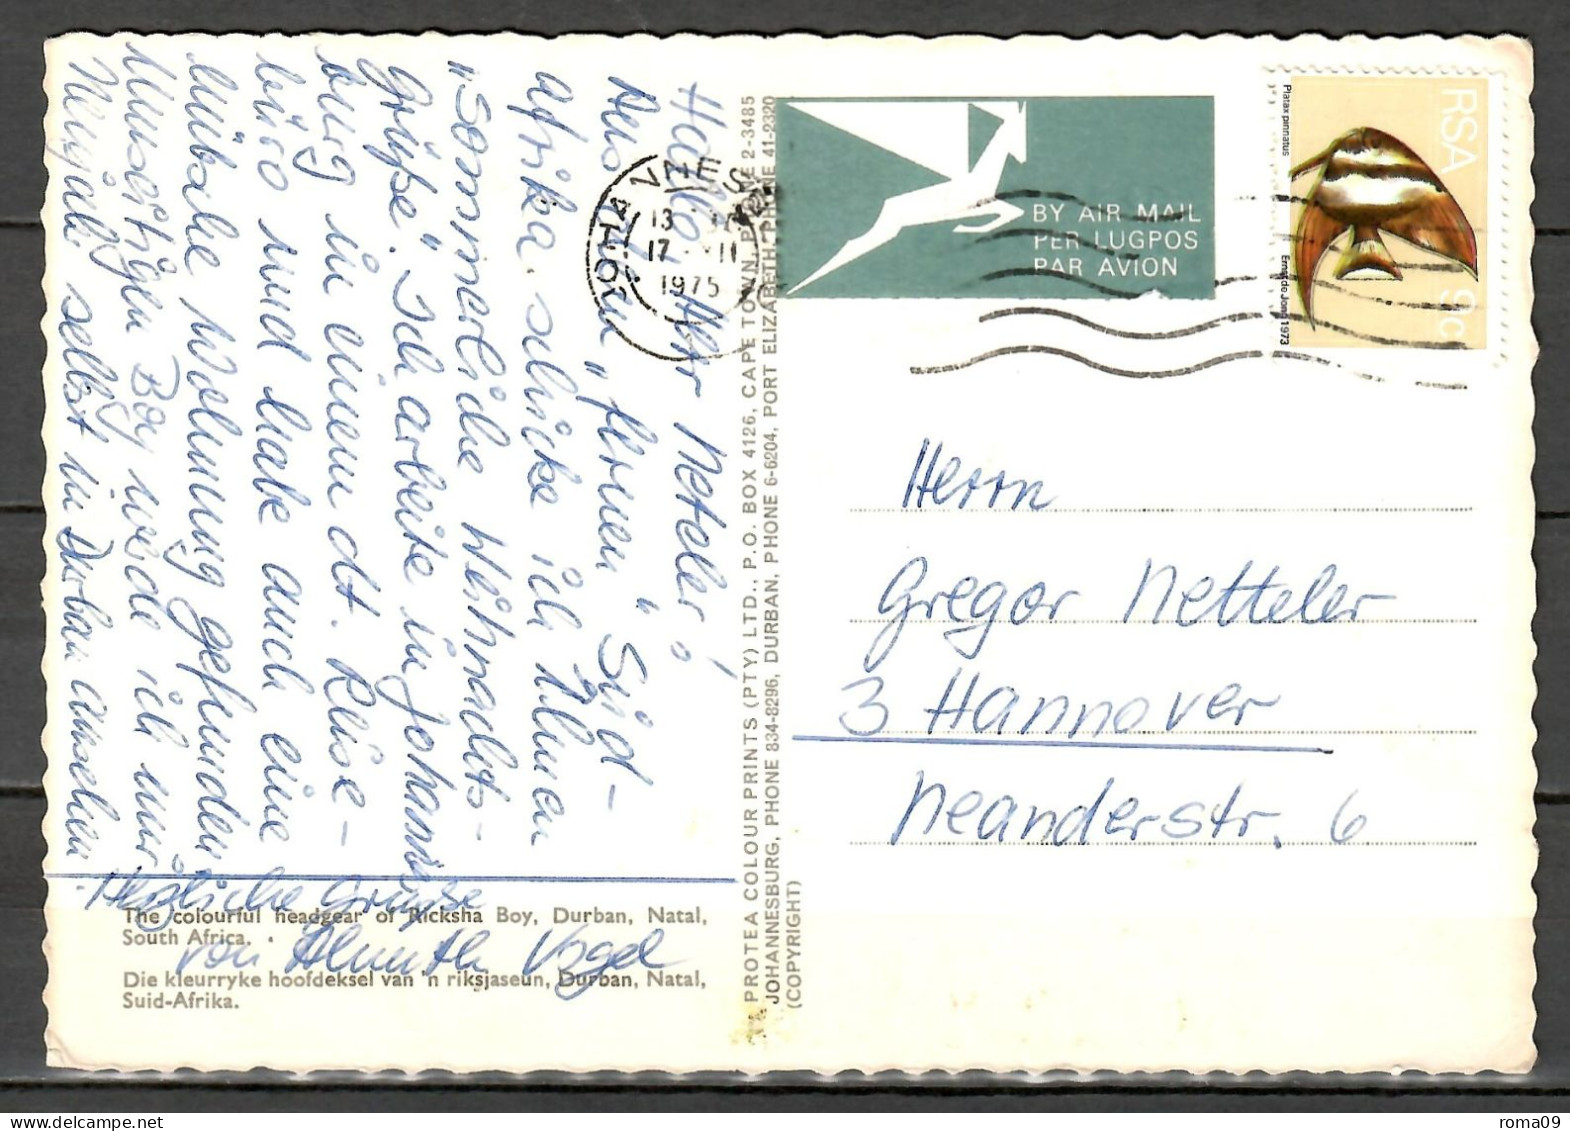 Hallo, Herr Neteler!
Aus dem „fernen" Süd-
afrika schicke ich Ihnen
„Sommerliche Weihnachts-
grüße". Ich arbeite in Johannis-
burg in einem dt. Reise-
büro und habe auch eine
hübsche Wohnung gefunden.
Boy werde ich mir
selbst in Durban ansehen.
Herzliche Grüße
von Almuth Vogel
The colourful headgear of Ricksha Boy, Durban, Natal,
South Africa.
Die kleurryke hoofdeksel van 'n riksjaseun, Durban, Natal,
Suid-Afrika.
PROTEA COLOUR PRINTS (PTY) LTD., P.O. BOX 4126, CAPE TOWN, PHONE 2-3485
JOHANNESBURG, PHONE 834-8296, DURBAN, PHONE 6-6204, PORT ELIZABETH, PHONE 41-2390
(COPYRIGHT)
13
17 · II
1975
BY AIR MAIL
PER LUGPOS
PAR AVION
RSA
9c
Platax pinnatus
Ernst de Jong 1973
Herrn
Gregor Netteler
3 Hannover
Neanderstr. 6
roma09